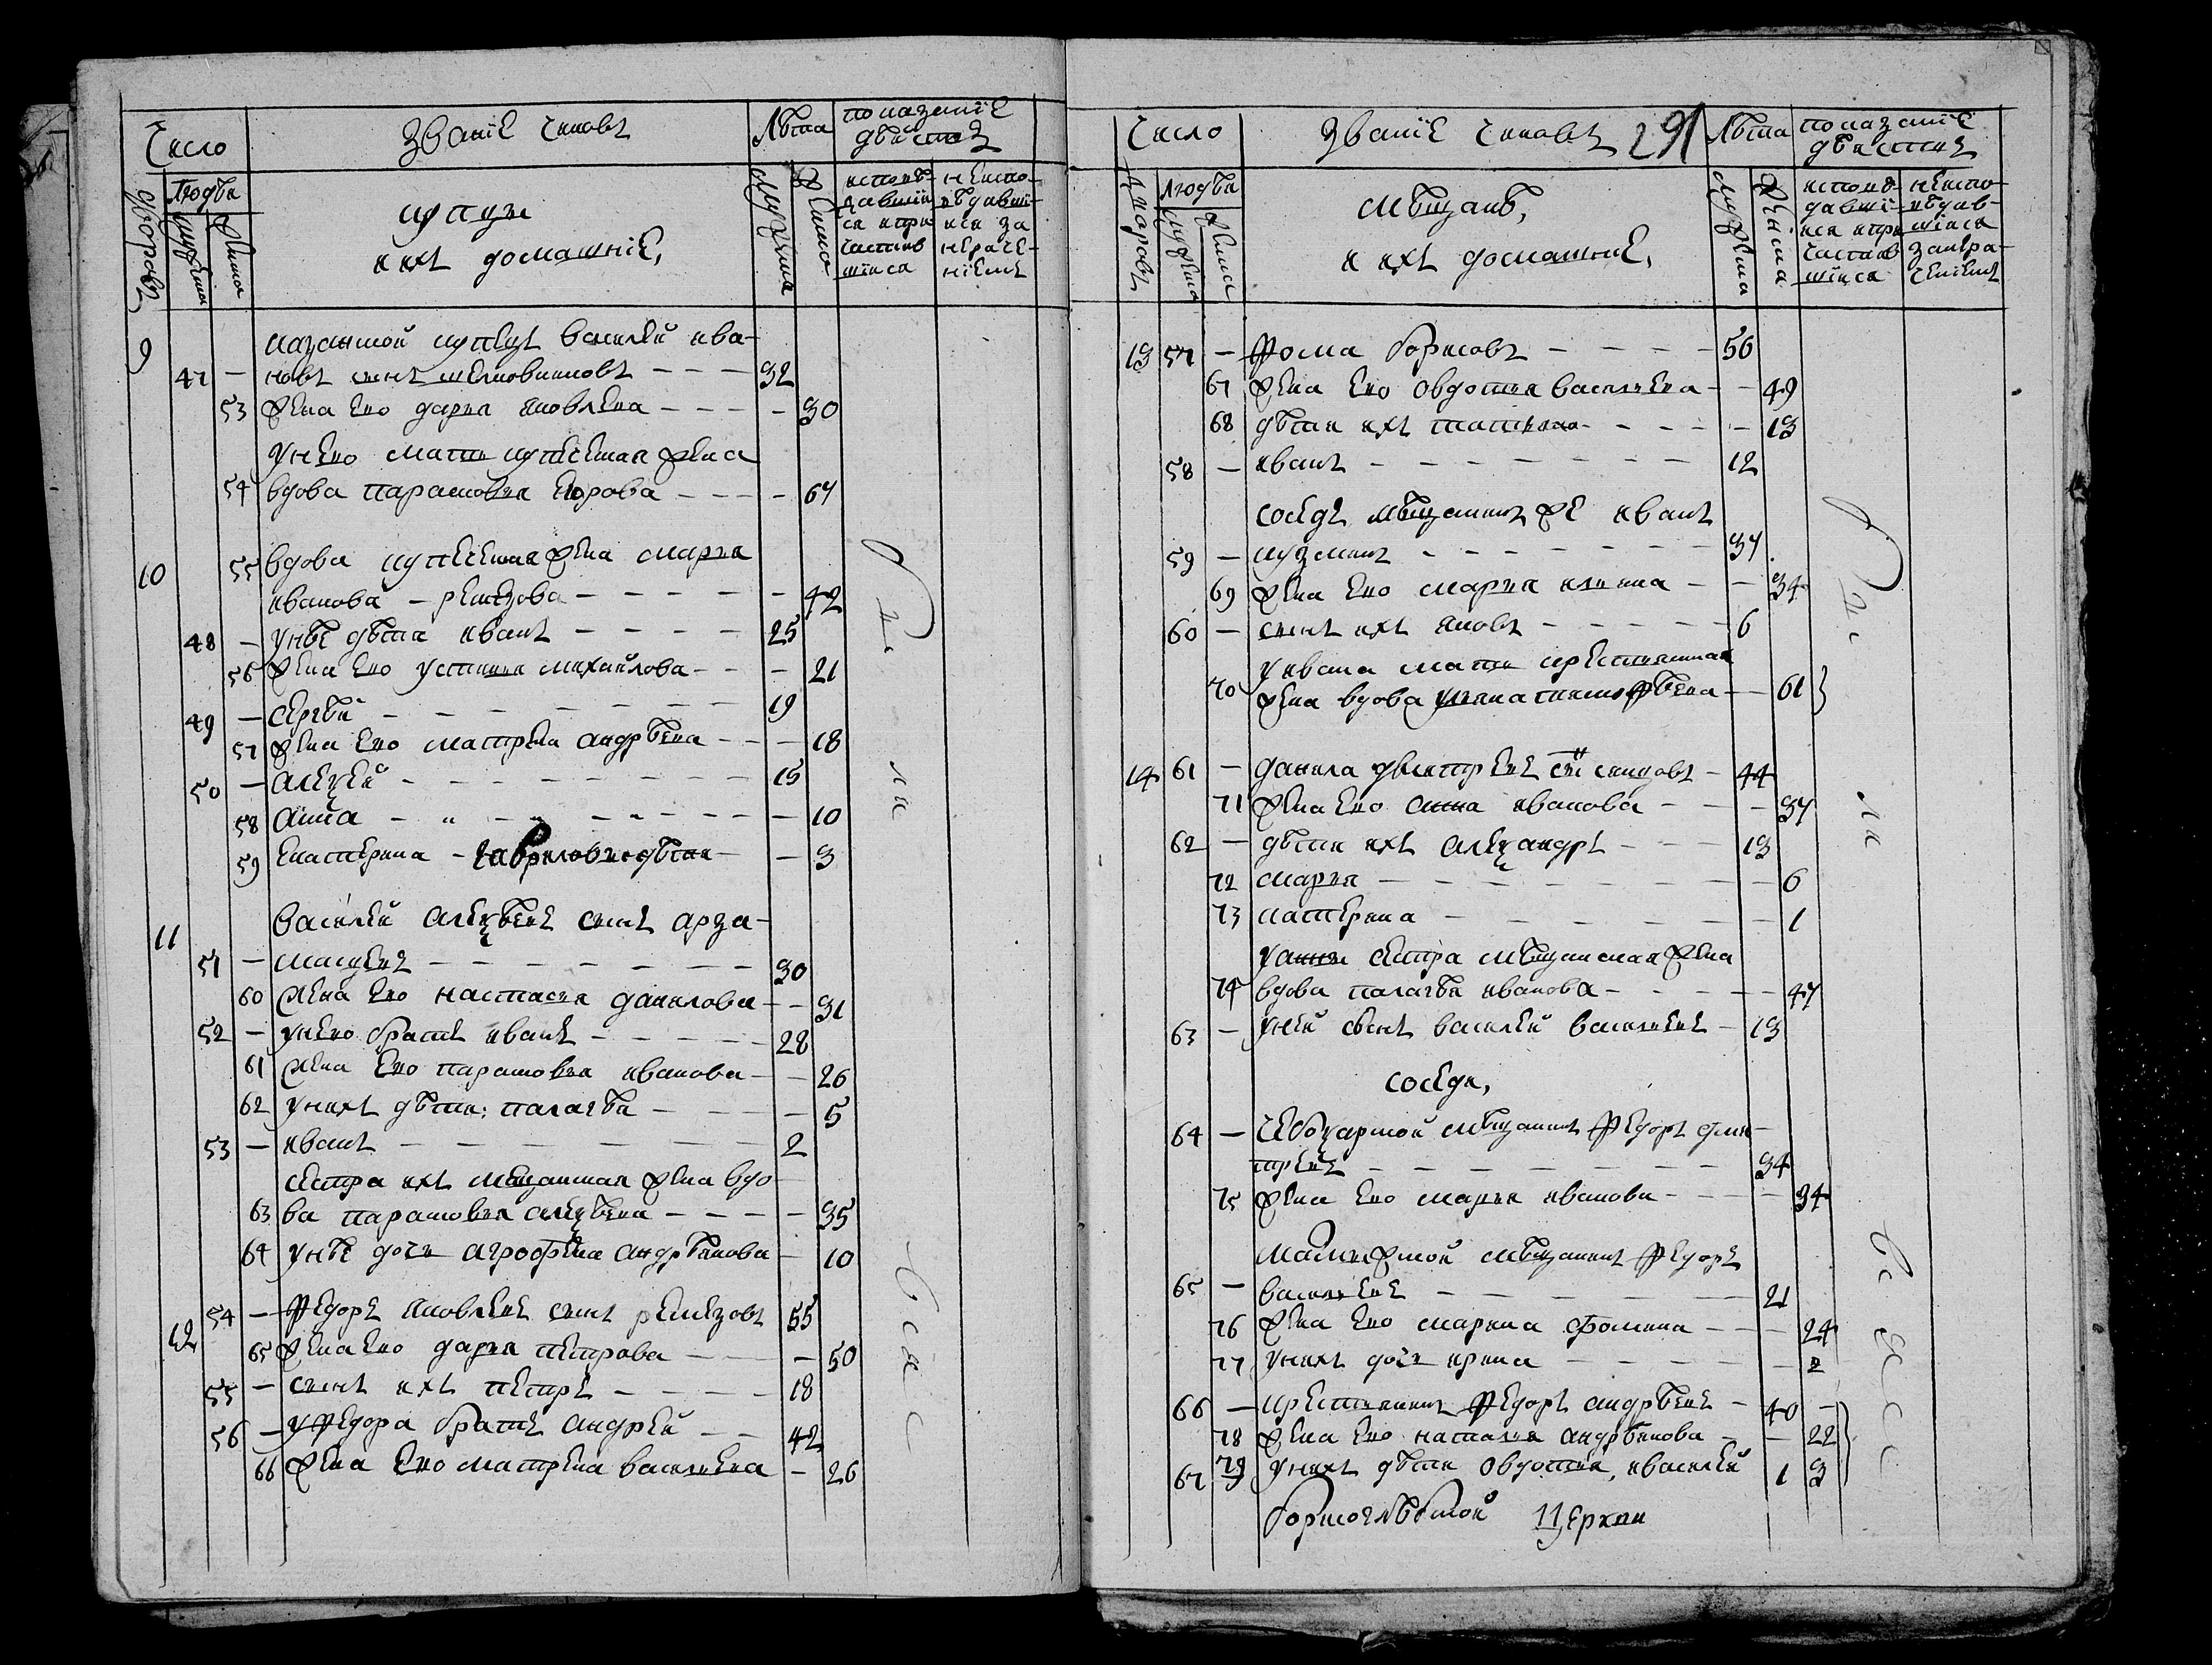 Число
Званїе чиновъ
Лѣта
показанїе
дѣйства
дворовъ
Людѣй
мужеска
женска
купцы
и ихъ домашнїе,
мужеска
женска
исповѣ-
давшїи-
ся и при
частив
шїися
неиспо-
вѣдавшї-
ися за
нераче-
нїемъ
9
казанской купецъ василей ива-
47 — новъ сынъ шелковниковъ — 32
53 жена ево дарья яковлева — 30
унево мать купеческая жена
54 вдова парасковья егорова — 67
10 55 вдова купеческая жена марья
иванова — ремезова — 42
48 — унѣе дѣти иванъ — 25
56 жена ево устинья михайлова — 21
49 — сергѣй — 19
57 жена ево матрена андрѣева — 18
50 — алеѯей — 15
58 анна — 10
59 екатерина — гавриловы дѣти — 3
11 василей алеѯѣевъ сынъ арза-
51 — масцевъ — 30
60 жена ево настасья данилова — 31
52 — унево братъ иванъ — 28
61 жена ево парасковья иванова — 26
62 унихъ дѣти: палагѣя — 5
53 — иванъ — 2
сестра ихъ мещанская жена вдо-
63 ва парасковья алеѯѣева — 35
64 унѣе дочь агрофена андрѣянова — 10
12 54 — Федоръ яковлевъ сынъ ремезовъ 55
65 жена ево дарья петрова — 50
55 — сынъ ихъ петръ — 18
56 — уФедора братъ андрей — 42
66 жена ево матрена васильева — 26
бы
ли
всѣ
Число
Званїе чиновъ
291
Лѣта
показанїе
дѣйства
дворовъ
Людѣй
мужеска
женска
мѣщанѣ,
и ихъ домашние,
мужеска
женска
исповѣ-
давшї-
ися и при
частив
шїися
неиспо-
вѣдав-
шїися
занера-
ченїемъ
13 57 — Фома борисовъ — 56
67 жена ево овдотья васильева — 49
68 дѣти ихъ татьяна — 13
58 — иванъ — 12
соседъ мѣщанинъ же иванъ
59 — кузминъ — 37
69 жена ево марья ильина — 34
60 — сынъ ихъ яковъ — 6
уивана мать крестьянская
70 жена вдова ульяна тимоФѣева — 61
14 61 — данила дмитрѣевъ — 44
71 жена ево анна иванова — 37
62 — дѣти ихъ алеѯандръ — 13
72 марья — 6
73 катерина — 1
уанны сестра мѣщанская жена
74 вдова палагѣя иванова — 47
63 — уней сынъ василей васильевъ — 13
соседи,
64 — чебоксарской мѣщанинъ Федоръ дми-
трѣевъ — 34
75 жена ево марья иванова — 34
мѣщанинъ Федоръ
65 — васильевъ — 21
76 жена ево марина фомина — 24
77 унихъ дочь ирина — 2
66 — крестьянинъ Федоръ андрѣевъ — 40 —
78 жена ево наталья андрѣянова — 22
67 79 унихъ дѣти овдотья, ивасилей 1 3
борисоглѣбской церкви
бы
ли
всѣ